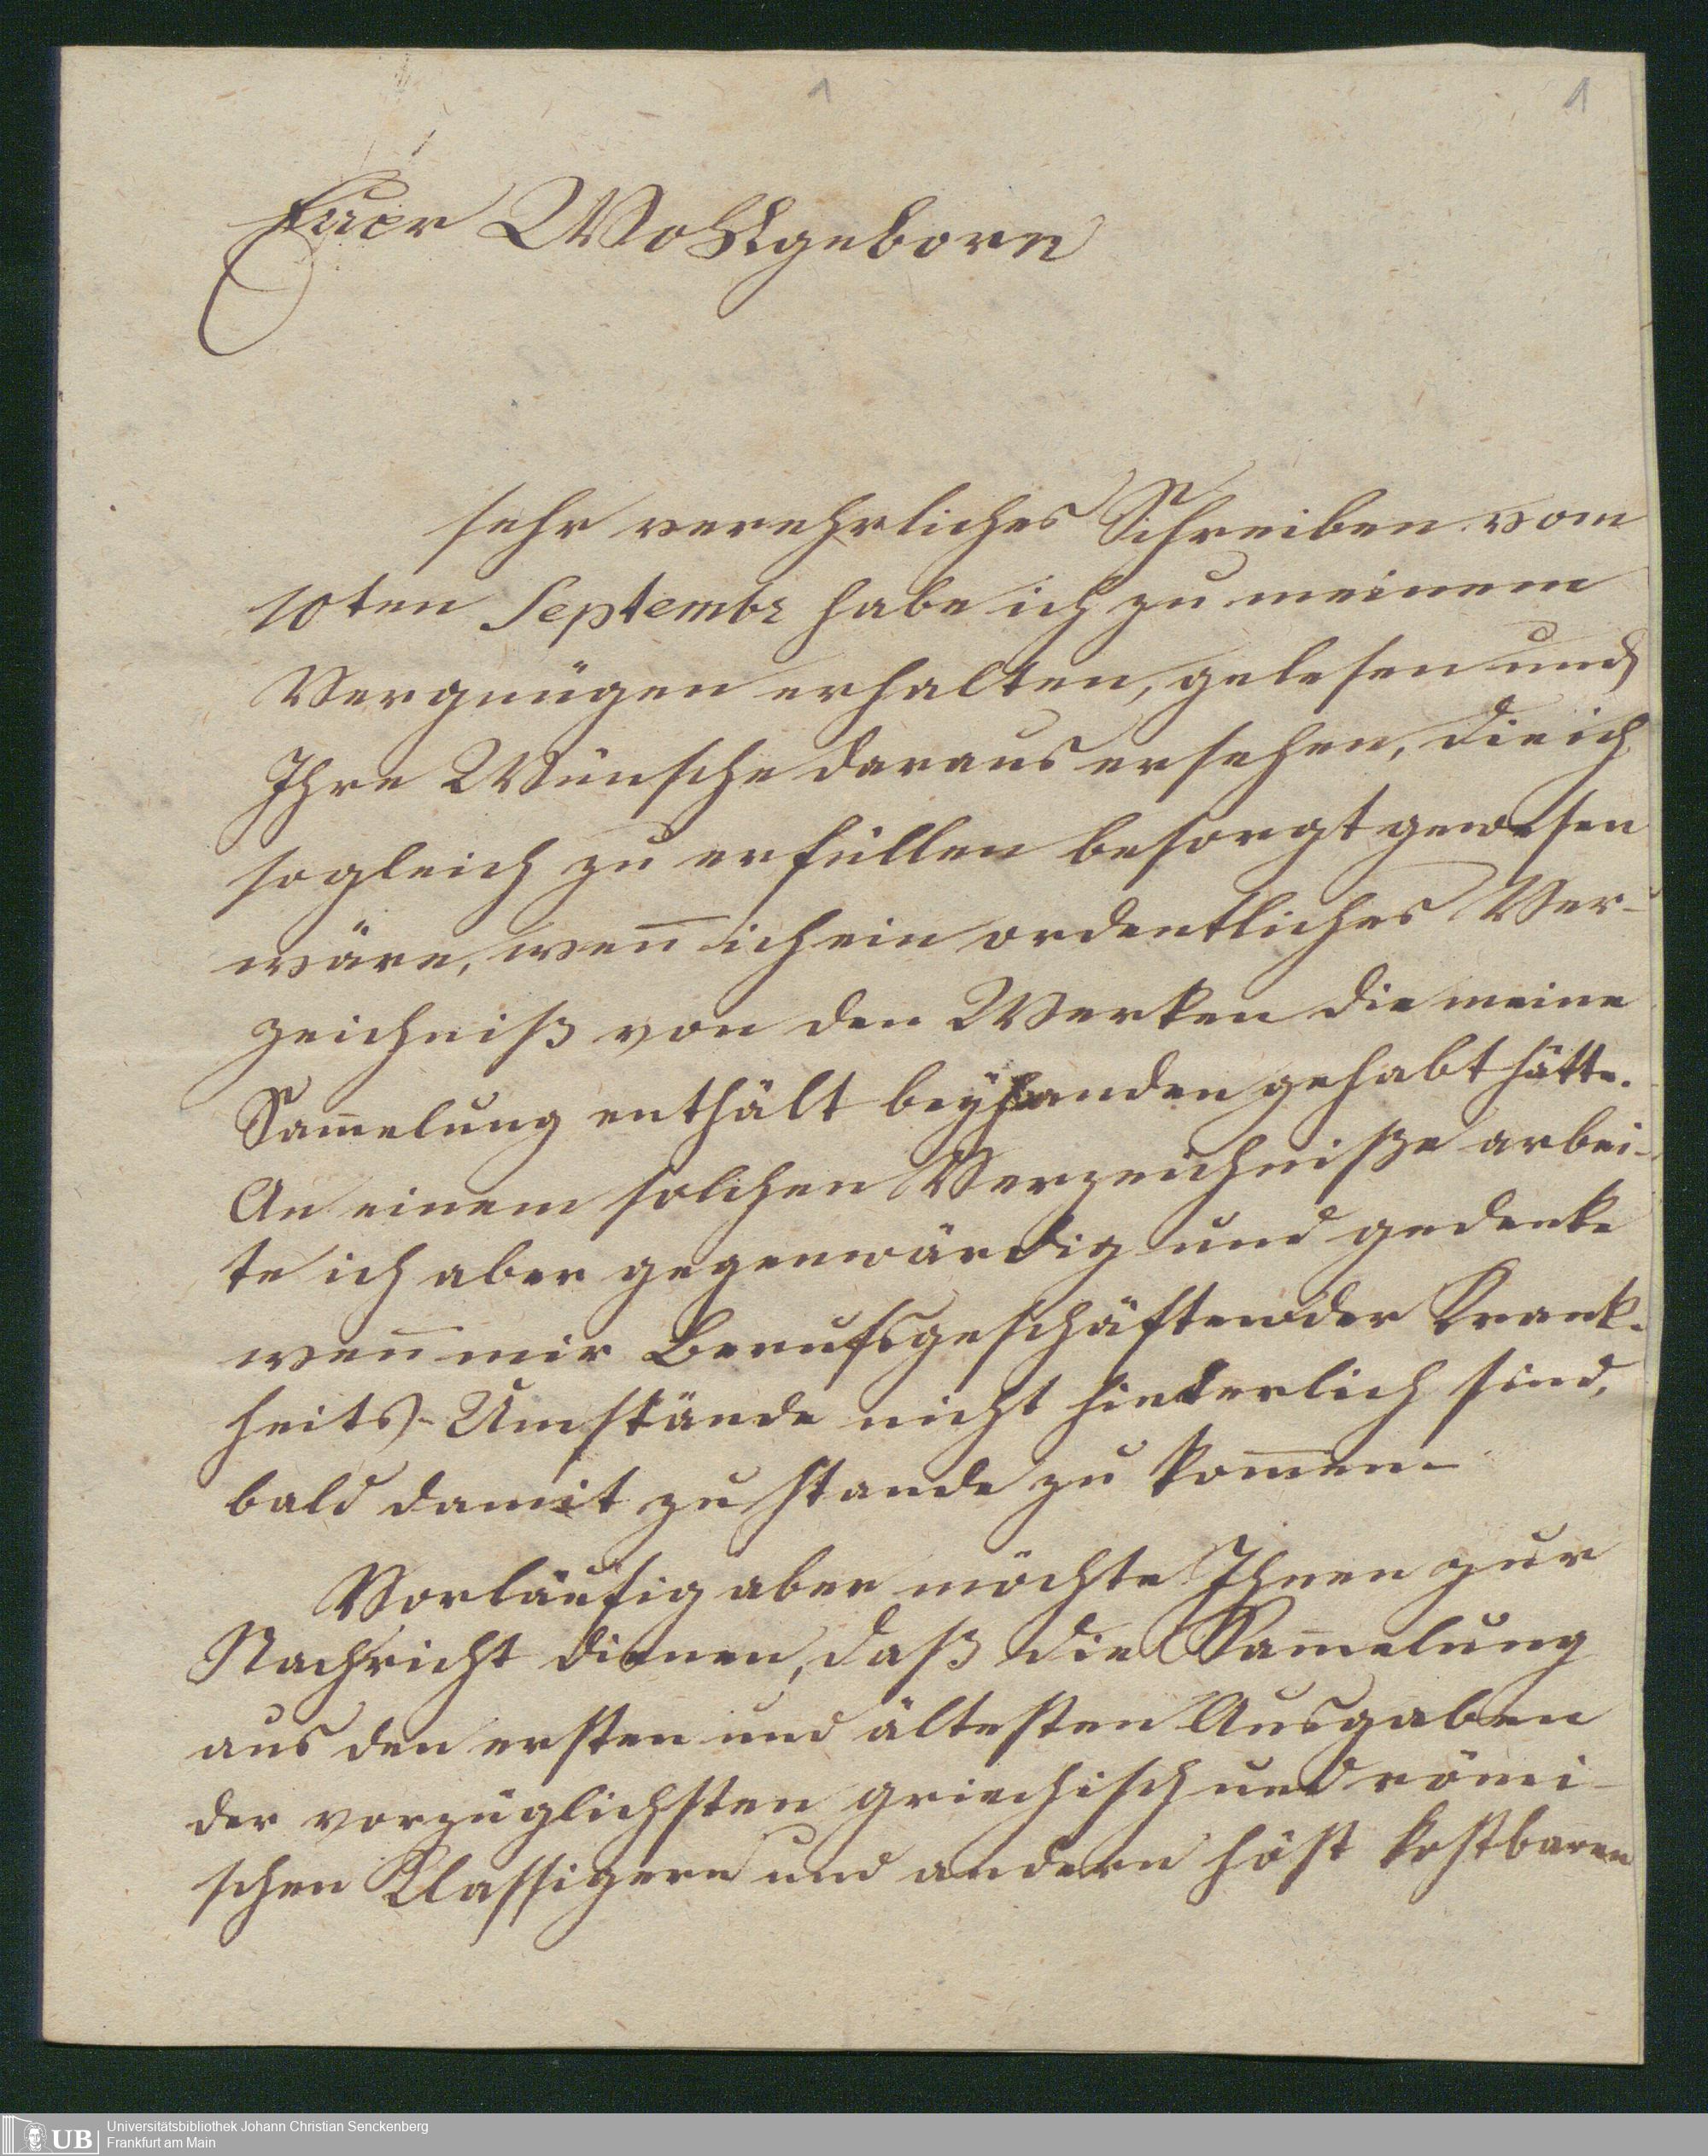 1 1
Euer Wohlgeborn
sehr verehrliches Schreiben vom
10ten Septembr habe ich zu meinem
Vergnügen erhalten, gelesen und
Ihre Wünsche daraus ersehen, die ich
sogleich zu erfüllen besorgt gewesen
wäre, wen̄ ich ein ordentliches Ver-
zeichniß von den Werken die meine
Sam̄elung enthält beyhanden gehabt hätte.
An einem solchen Verzeichniße arbei-
te ich aber gegenwärdig und gedenke
wen̄ mir Berufsgeschäften oder Krank-
heits-Umstände nicht hinderlich sind,
bald damit zu stande zu kom̄en.
Vorläufig aber möchte Ihnen zur
Nachricht dienen, daß die Sam̄elung
aus den ersten und ältesten Ausgaben
der vorzüglichsten griechisch und römi-
schen Klassigern und andern höst kostbaren
UB Universitätsbibliothek Johann Christian Senckenberg
Frankfurt am Main